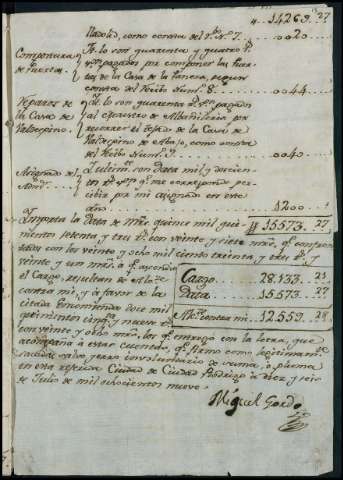 14269.. 27
Napoles, como consta del rbo. Nº. 7. 0020..
Compostura de Puertas. Yt. lo son quarenta y quatro rs.
vn. pagados por componer las Puertas
de la Casa de la Panera, segun
consta del Recibo Num. 8. 0044
Reparos de la Casa de Valdespino. Yt. lo son quarenta rs. vn. pagados
al Maestro de Albañileria por
recorrer el tejado de la Casa de
Valdespino de Abajo, como consta
del Recibo Num. 9. 0040..
Asignado del Admor. Ultimte. son data mil y doscientos
rs. vn. qe. me corresponde percibir
por mi asignado en este
año 1200
Importa la Data de Mrs. quince mil quinientos 15573.. 27
setenta y tres rs. con veinte y siete mrs. qe. confrontados
con los veinte y ocho mil ciento treinta y tres rs. y
veinte y un mrs. a qe. asciende
el Cargo, resultan de Alce.
contra mi, y a favor de la
citada Encomienda doce mil
quinientos cinqta. y nueve rs.
con veinte y ocho mrs. los qe. entrego con la letra, que
acompaña a estas cuentas, qe. firmo como legitimamte.
sacadas, salvo yerro involuntario de suma, o pluma
en esta referida Ciudad de Ciudad Rodrigo a diez y seis
de Julio de mil ochocientos nueve.
Cargo 28.133. 21
Data 15573.. 27
Alce. contra mi 12.559.. 28
Miguel Gordo